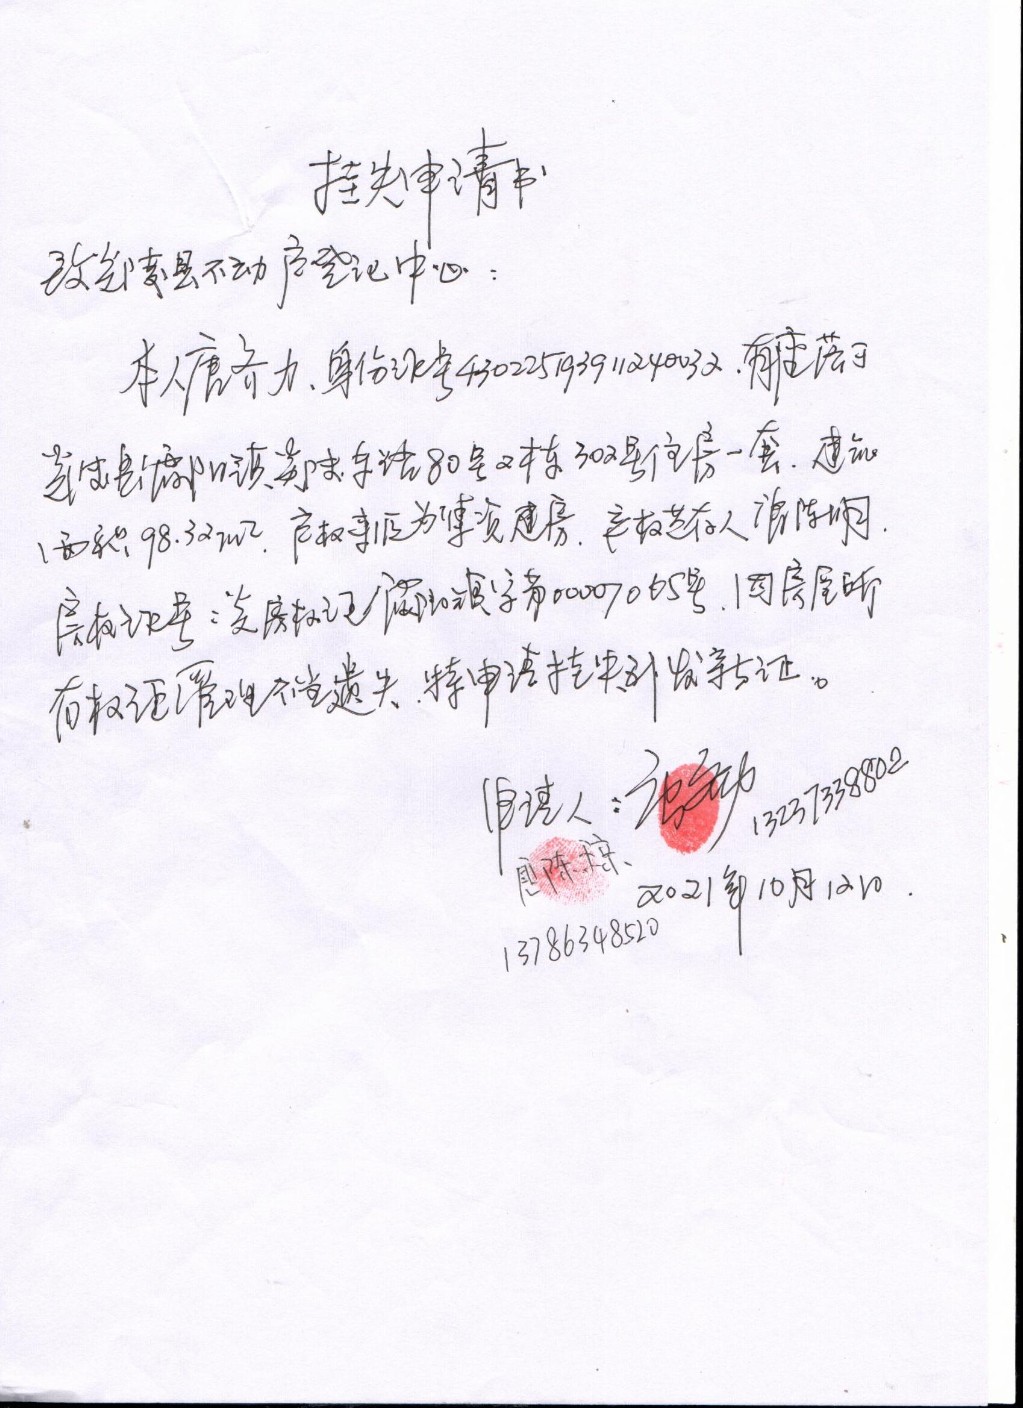 挂失申请书
致炎陵县不动产登记中心：
本人唐齐力、身份证号430225193911240032、有座落于
炎陵县霞阳镇炎陵东路80号2栋302号住房一套、建筑
面积98.32m²、产权来历为集资建房、产权共有人唐陈
房权证号：炎房权证霞阳镇字第00007065号、因房屋所
有权证管理不当遗失、特申请挂失补发新证。
申请人：唐齐力 13237338802
唐陈 2021年10月12日.
13786348520